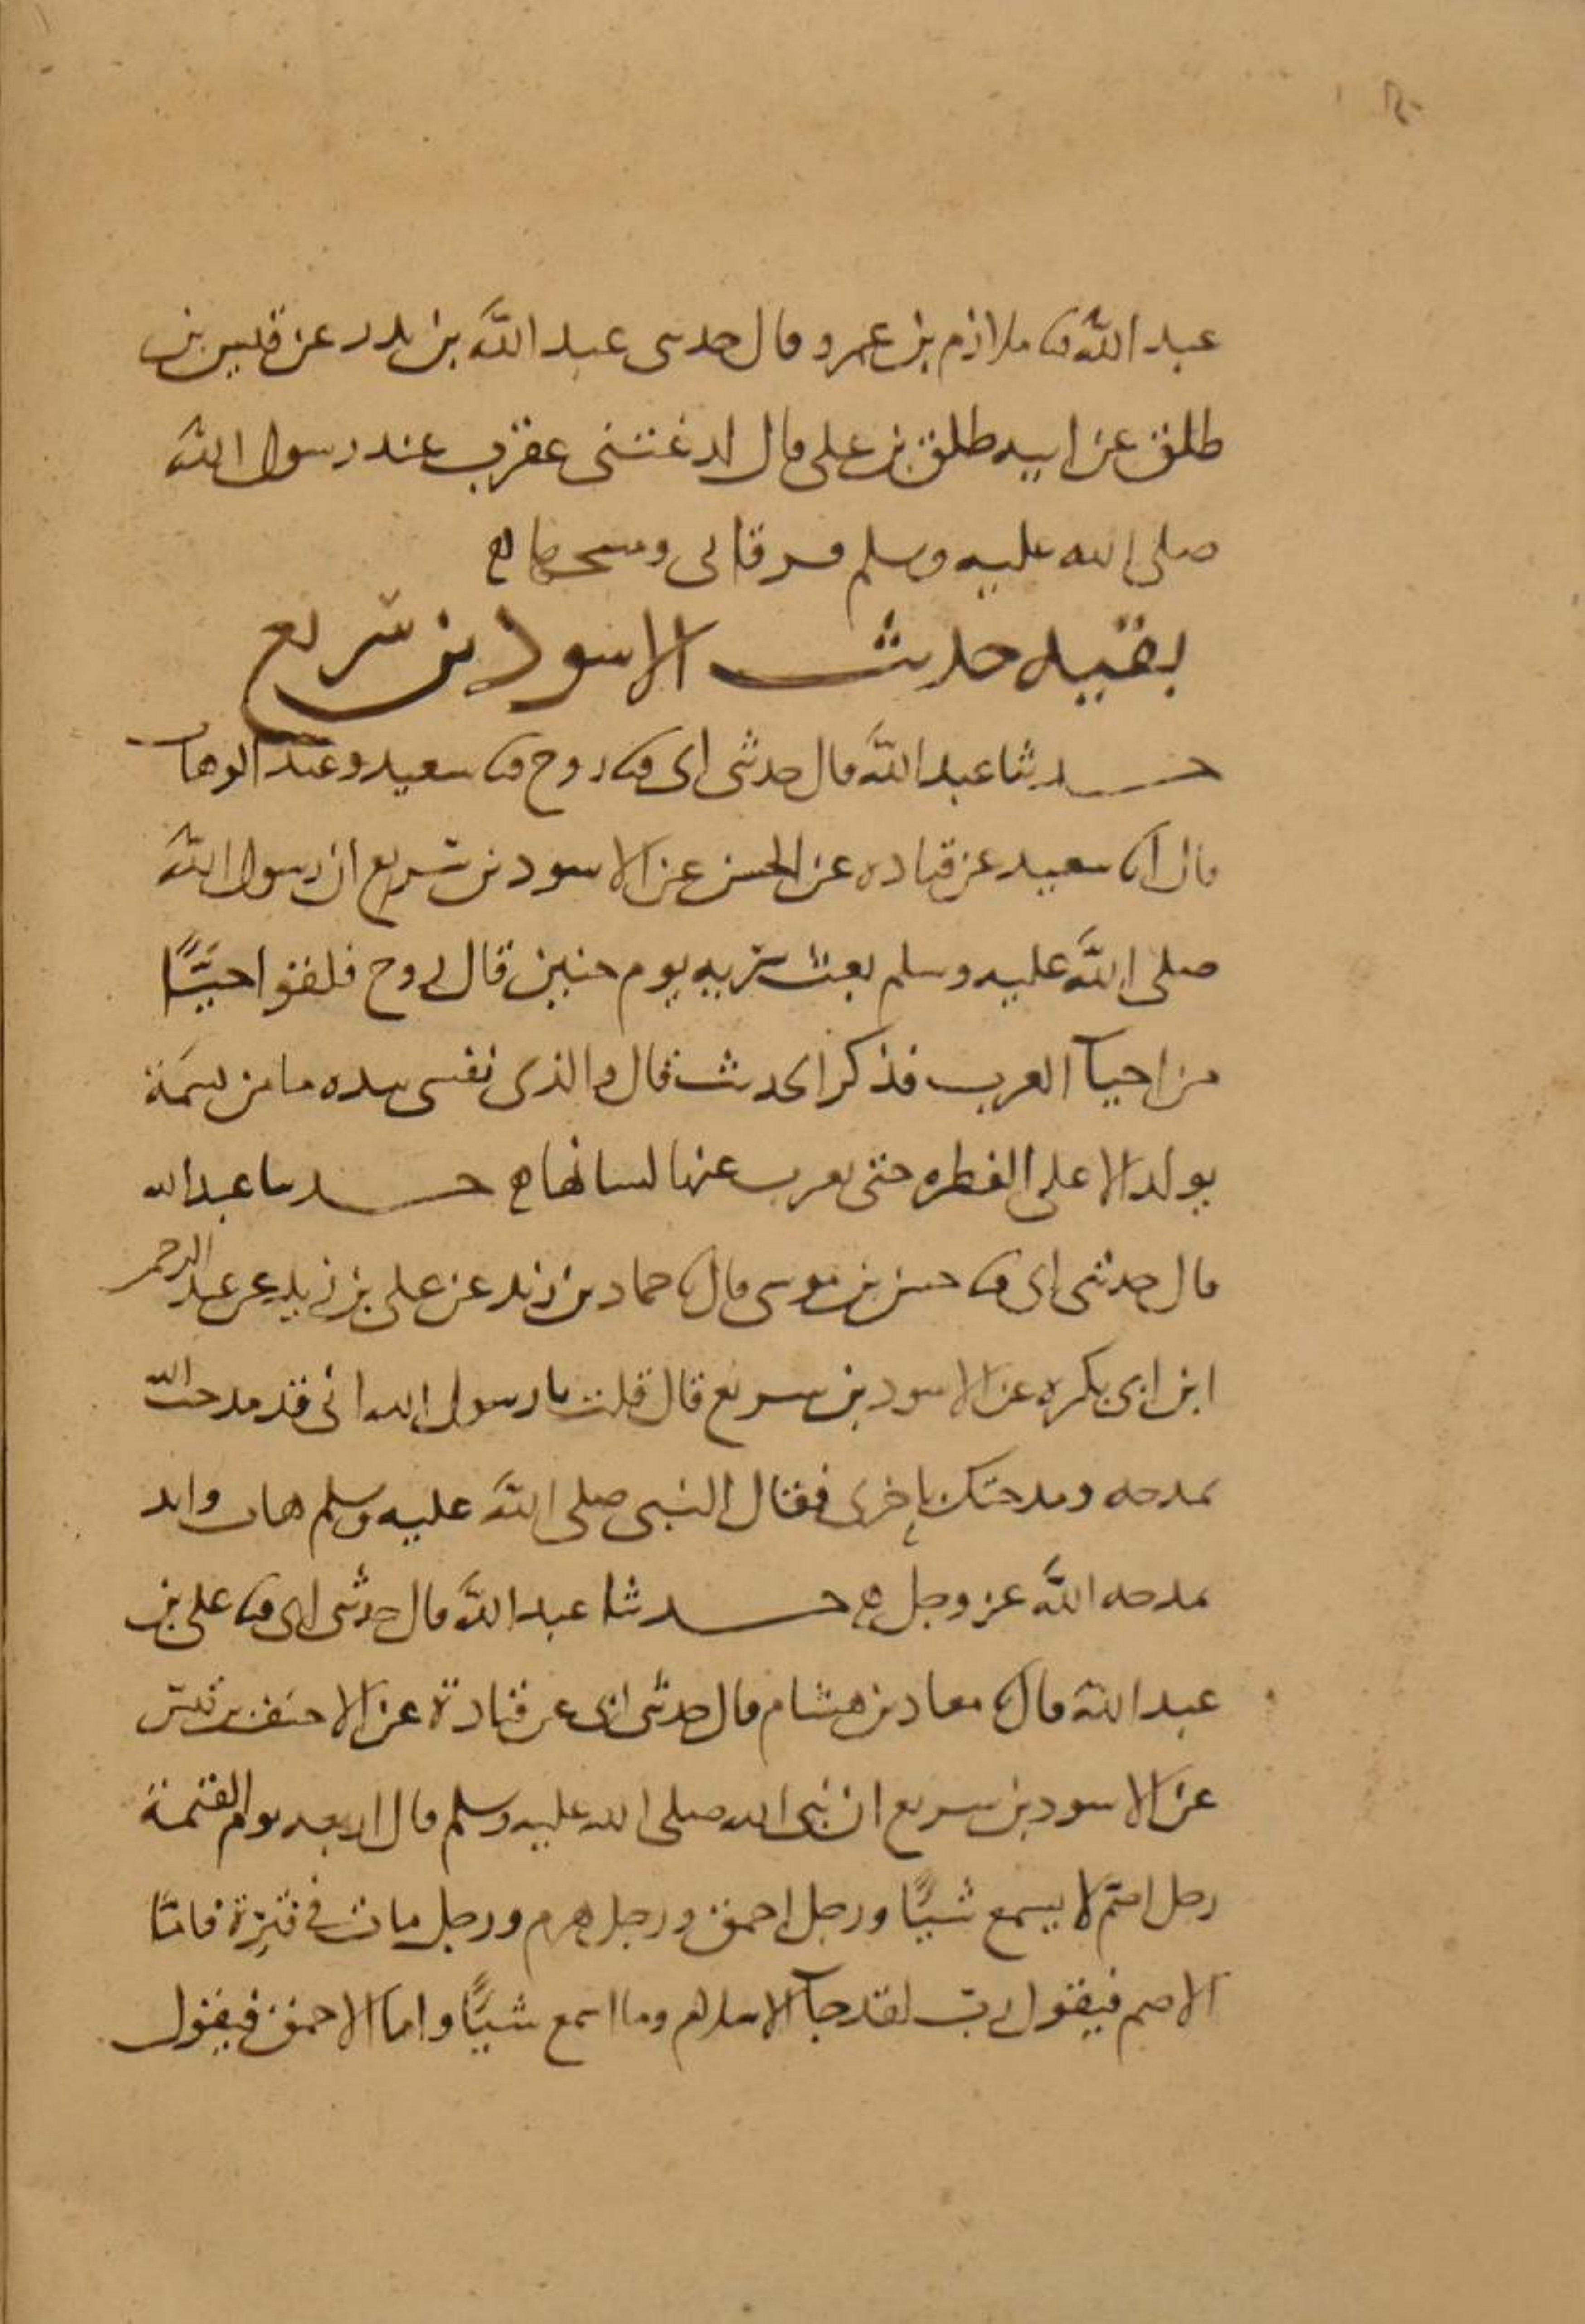 عبد الله ثنا ملازم بن عمرو قال حدثني عبد الله بن بدر عن قيس بن
طلق عن ابيه طلق بن علي قال لدغتني عقرب عند رسول الله
صلى الله عليه وسلم فرقاني ومسحها
بقيه حديث الاسود بن سريع
حدثنا عبد الله قال حدثني ابي ثنا روح ثنا سعيد وعبد الوهاب
قال انا سعيد عن قتاده عن الحسن عن الاسود بن سريع ان رسول الله
صلى الله عليه وسلم بعث سريه يوم حنين قال روح فلقوا حيًّا
من احيآ العرب فذكر الحديث قال والذي نفسي بيده ما من نسمة
يولد الا على الفطره حتى يعرب عنها لسانها حدثنا عبد الله
قال حدثني ابي ثنا حسن بن موسى قال ثنا حماد بن زيد عن علي بن زيد عن عبد الرحمن
ابن ابي بكره عن الاسود بن سريع قال قلت يا رسول الله اني قد مدحت الله
بمدحه ومدحتك باخرى فقال النبي صلى الله عليه وسلم هات وابد
بمدحه الله عز وجل حدثنا عبد الله قال حدثني ابي ثنا علي بن
عبد الله قال ثنا معاذ بن هشام قال حدثني ابي عن قتادة عن الاحنف بن قيس
عن الاسود بن سريع ان نبي الله صلى الله عليه وسلم قال اربعه يوم القيمة
رجل اصمّ لا يسمع شيًّا ورجل احمق ورجل هرم ورجل مات في فترة فامّا
الاصم فيقول ربّ لقد جآ الاسلام وما اسمع شيًّا واما الاحمق فيقول